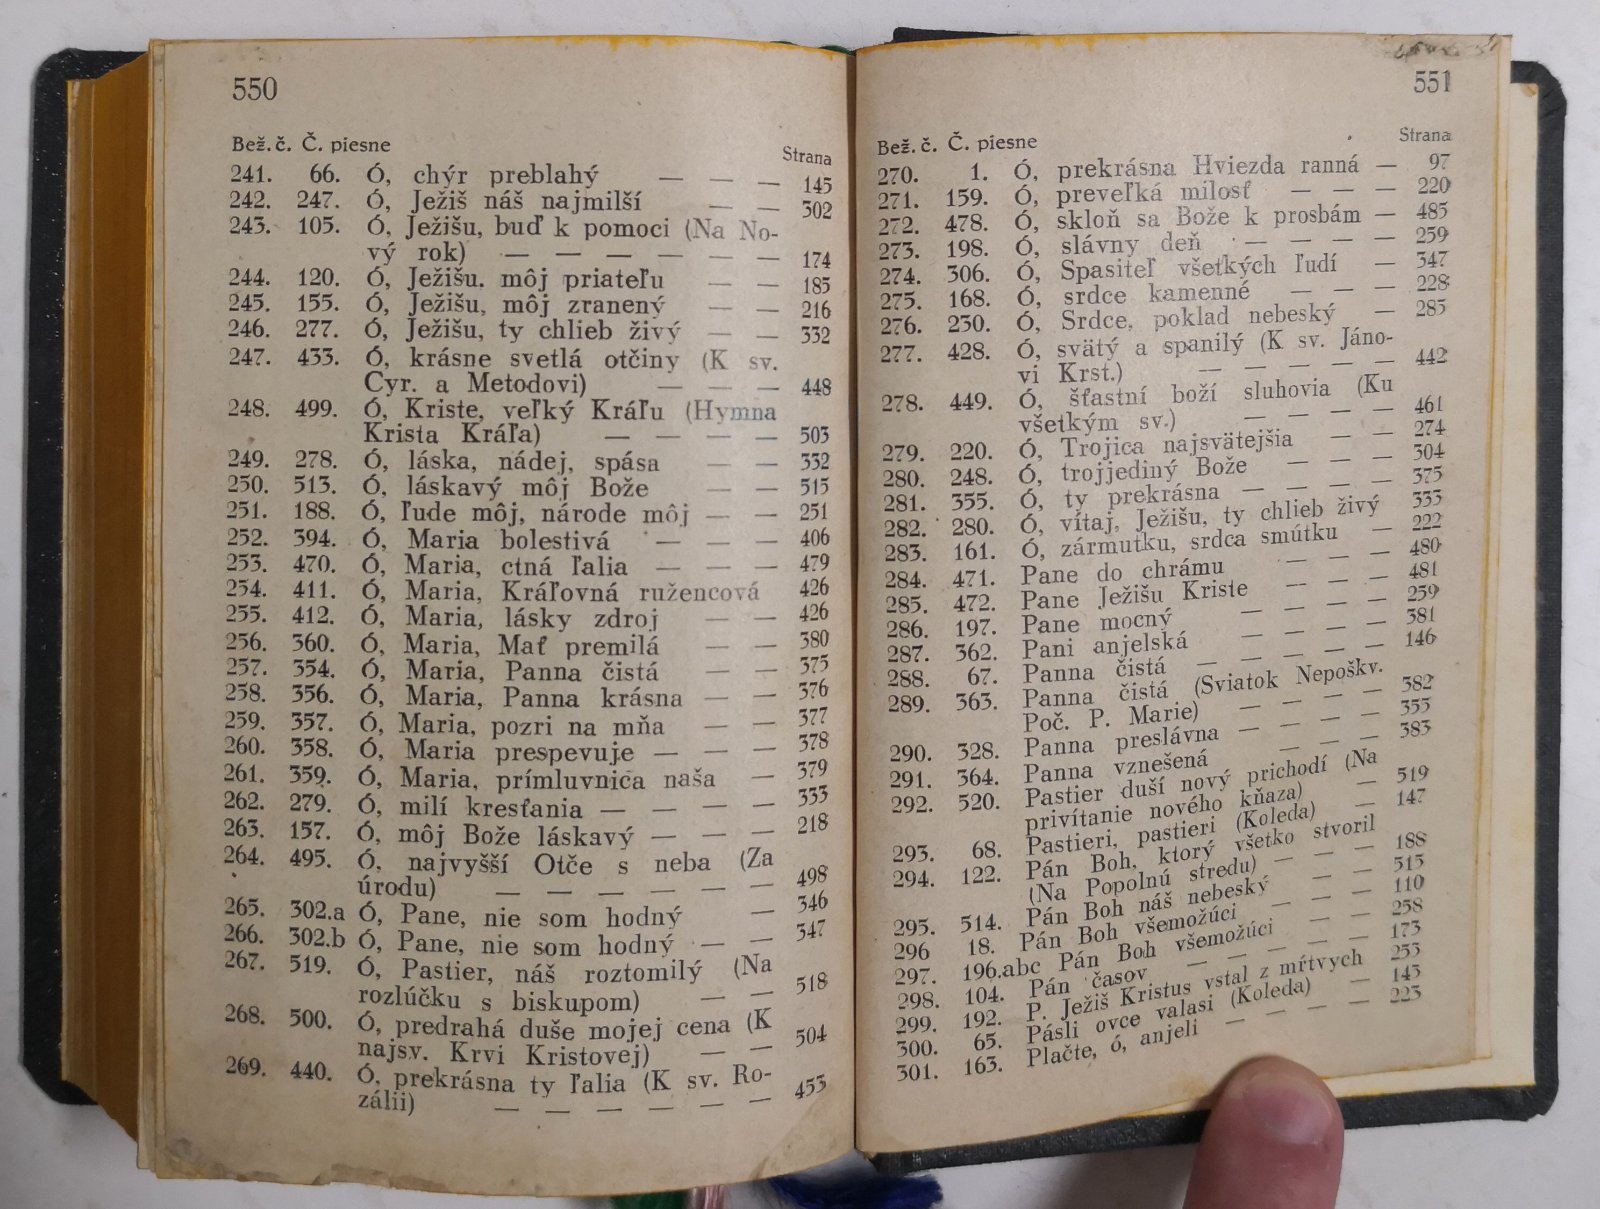 550
Bež. č. Č. piesne Strana
241. 66. Ó, chýr preblahý — — — 145
242. 247. Ó, Ježiš náš najmilší — — 302
243. 105. Ó, Ježišu, buď k pomoci (Na No-
vý rok) — — — — — — 174
244. 120. Ó, Ježišu. môj priateľu — — 185
245. 155. Ó, Ježišu, môj zranený — — 216
246. 277. Ó, Ježišu, ty chlieb živý — — 332
247. 433. Ó, krásne svetlá otčiny (K sv.
Cyr. a Metodovi) — — — 448
248. 499. Ó, Kriste, veľký Kráľu (Hymna
Krista Kráľa) — — — — 503
249. 278. Ó, láska, nádej, spása — — 332
250. 513. Ó, láskavý môj Bože — — 515
251. 188. Ó, ľude môj, národe môj — — 251
252. 394. Ó, Maria bolestivá — — — 406
253. 470. Ó, Maria, ctná ľalia — — — 479
254. 411. Ó, Maria, Kráľovná ružencová 426
255. 412. Ó, Maria, lásky zdroj — — 426
256. 360. Ó, Maria, Mať premilá — — 380
257. 354. Ó, Maria, Panna čistá — — 375
258. 356. Ó, Maria, Panna krásna — — 376
259. 357. Ó, Maria, pozri na mňa — — 377
260. 358. Ó, Maria prespevuje — — — 378
261. 359. Ó, Maria, prímluvnica naša — 379
262. 279. Ó, milí kresťania — — — — 333
263. 157. Ó, môj Bože láskavý — — — 218
264. 495. Ó, najvyšší Otče s neba (Za
úrodu) — — — — — — 498
265. 302.a Ó, Pane, nie som hodný — 346
266. 302.b Ó, Pane, nie som hodný — — 347
267. 519. Ó, Pastier, náš roztomilý (Na
rozlúčku s biskupom) — — 518
268. 500. Ó, predrahá duše mojej cena (K
najsv. Krvi Kristovej) — — 504
269. 440. Ó, prekrásna ty ľalia (K sv. Ro-
zálii) — — — — — — 453
551
Bež. č. Č. piesne Strana
270. 1. Ó, prekrásna Hviezda ranná — 97
271. 159. Ó, preveľká milosť — — — 220
272. 478. Ó, skloň sa Bože k prosbám — 485
273. 198. Ó, slávny deň — — — — 259
274. 306. Ó, Spasiteľ všetkých ľudí — 347
275. 168. Ó, srdce kamenné — — — 228
276. 230. Ó, Srdce, poklad nebeský — 285
277. 428. Ó, svätý a spanilý (K sv. Jáno-
vi Krst.) — — — — — 442
278. 449. Ó, šťastní boží sluhovia (Ku
všetkým sv.) — — — — 461
279. 220. Ó, Trojica najsvätejšia — — 274
280. 248. Ó, trojjediný Bože — — — 304
281. 355. Ó, ty prekrásna — — — — 375
282. 280. Ó, vítaj, Ježišu, ty chlieb živý 333
283. 161. Ó, zármutku, srdca smútku — 222
284. 471. Pane do chrámu — — — 480
285. 472. Pane Ježišu Kriste — — — 481
286. 197. Pane mocný — — — — 259
287. 362. Pani anjelská — — — — 381
288. 67. Panna čistá — — — — — 146
289. 363. Panna čistá (Sviatok Nepoškv.
Poč. P. Marie) — — — 382
290. 328. Panna preslávna — — — — 355
291. 364. Panna vznešená — — — 383
292. 520. Pastier duší nový prichodí (Na
privítanie nového kňaza) — 519
293. 68. Pastieri, pastieri (Koleda) — 147
294. 122. Pán Boh, ktorý všetko stvoril
(Na Popolnú stredu) — — — 188
295. 514. Pán Boh náš nebeský — — 515
296 18. Pán Boh všemožúci — — — 110
297. 196.abc Pán Boh všemožúci — — 258
298. 104. Pán časov — — — — — 173
299. 192. P. Ježiš Kristus vstal z mŕtvych 253
300. 65. Pásli ovce valasi (Koleda) — 145
301. 163. Plačte, ó, anjeli — — — — 223